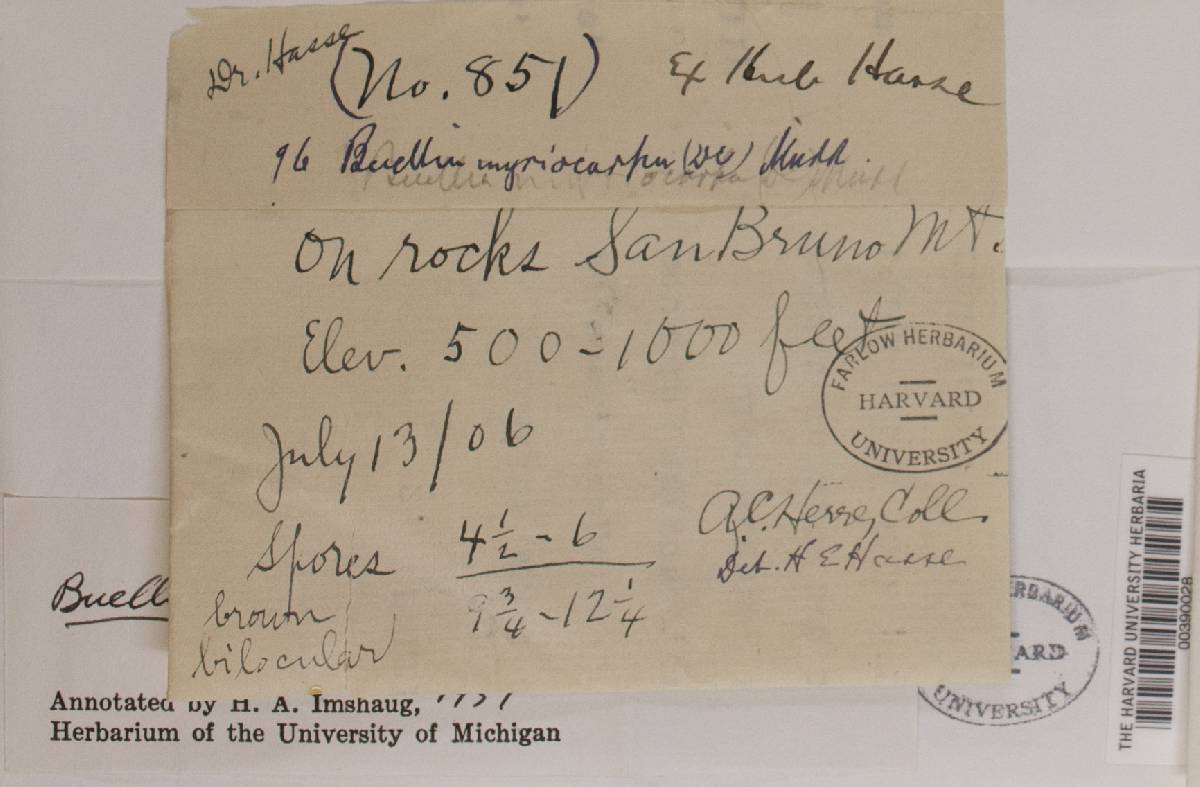 Dr. Hasse
(No. 851)
Ex Herb Hasse
96 Buellia myriocarpa (DC) Mudd.
On rocks San Bruno Mt.
Elev. 500-1000 feet
FARLOW HERBARIUM
HARVARD
UNIVERSITY
July 13/06
A.C. Herre, Coll.
Det. H E Hasse
Spores 4 1/2 - 6
9 3/4 - 12 1/4
brown
bilocular
Buell
Annotated by H. A. Imshaug,
Herbarium of the University of Michigan
ERBARIUM
ARD
UNIVERSITY
THE HARVARD UNIVERSITY HERBARIA
00390028